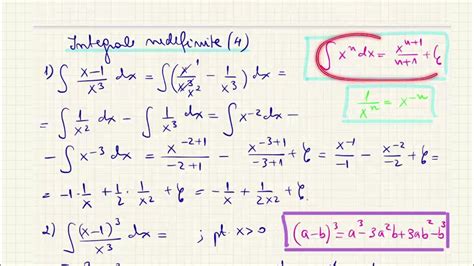 Integrale nedefinite (4)
∫ xⁿ dx = xⁿ⁺¹/(n+1) + C
1) ∫ (x-1)/x³ dx = ∫ (x/x³ - 1/x³) dx =
1/xⁿ = x⁻ⁿ
= ∫ 1/x² dx - ∫ 1/x³ dx = ∫ x⁻² dx -
- ∫ x⁻³ dx = x⁻²⁺¹/(-2+1) - x⁻³⁺¹/(-3+1) + C = x⁻¹/(-1) - x⁻²/(-2) + C
= -1·1/x + 1/2·1/x² + C = -1/x + 1/(2x²) + C.
2) ∫ (x-1)³/x dx = ; pt. x>0
(a-b)³ = a³-3a²b+3ab²-b³